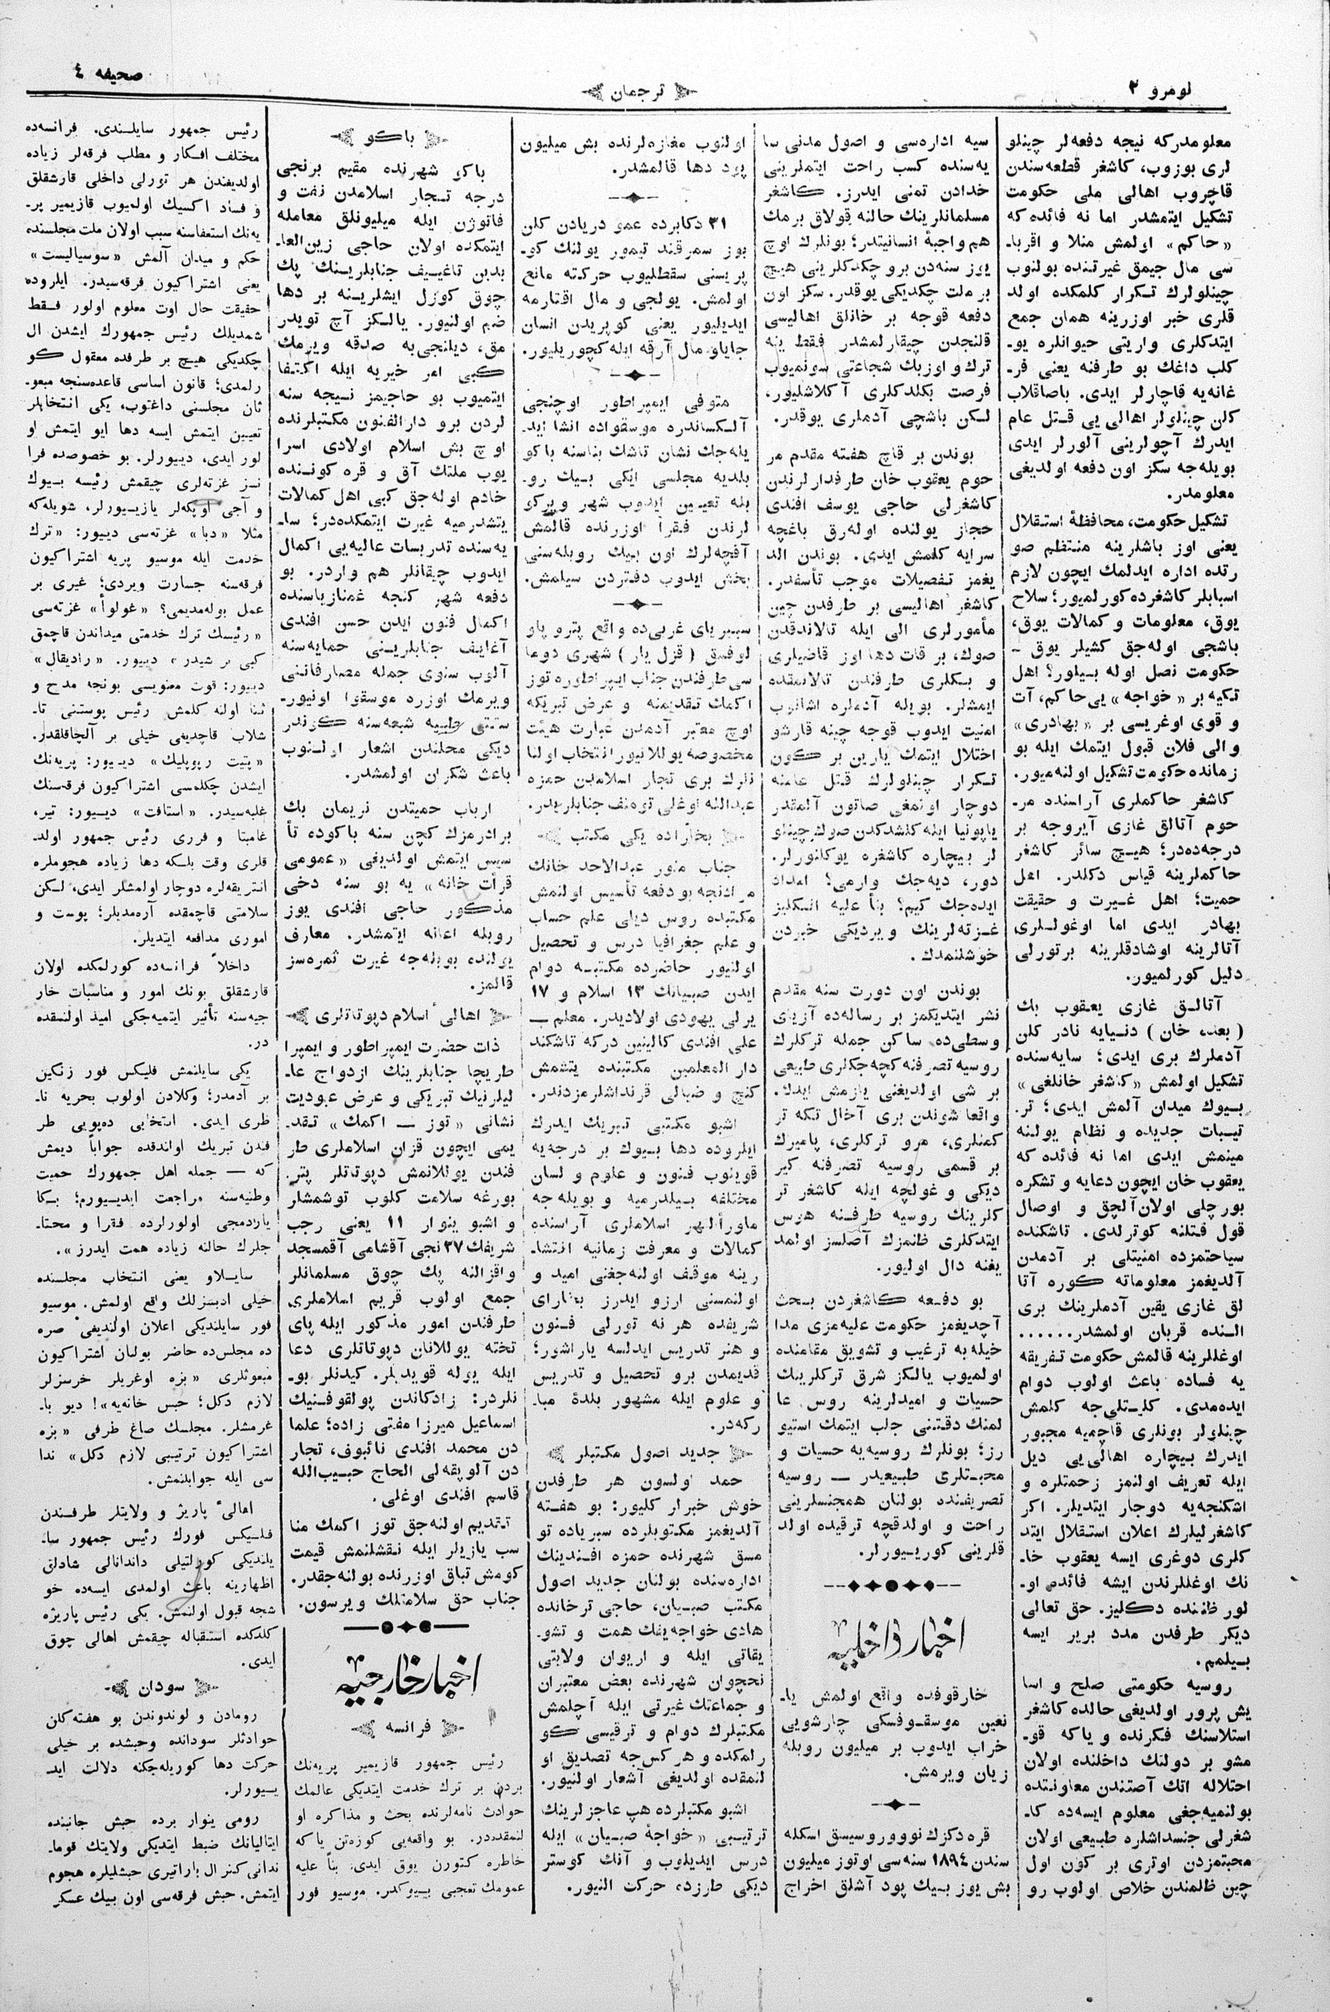 لومرو ٢
ترجمان
صحیفه ٤
معلومدرکه نیچه دفعه‌لر چینلو
لری بوزوب، کاشغر قطعه‌سندن
قاچروب اهالی ملی حکومت
تشکیل ایتمشدر اما نه فائده که
«حاکم» اولمش منلا و اقربا۔
سی مال جیمق غیرتنده بولنوب
چینلولرك تکرار کلمکده اولد
قلری خبر اوزرینه همان جمع
ایتدکلری واریتی حیوانلره یو۔
کلب داغك بو طرفنه یعنی فر۔
غانه‌یه قاچارلر ایدی. باصاقلاب
کلن چینلولر اهالی یی قتل عام
ایدرك آچولرینی آلورلر ایدی
بویله‌جه سکز اون دفعه اولدیغی
معلومدر.
تشکیل حکومت، محافظهٔ استقلال
یعنی اوز باشلرینه منتظم صو
رتده اداره ایدلمك ایچون لازم
اسبابلر کاشغرده کورلمیور؛ سلاح
یوق، معلومات و کمالات یوق،
باشجی اوله‌جق کشیلر یوق –
حکومت نصل اوله بیلور؟ اهل
تکیه بر «خواجه» یی حاکم، آت
و قوی اوغریسی بر «بهادری»
والی فلان قبول ایتمك ایله بو
زمانده حکومت تشکیل اولنه‌میور.
کاشغر حاکملری آراسنده مر۔
حوم آتالق غازی آیروجه بر
درجه‌ده‌در؛ هیچ سائر کاشغر
حاکملرینه قیاس دکلدر. اهل
حمیت؛ اهل غیرت و حقیقت
بهادر ایدی اما اوغوللری
آتالرینه اوشادقلرینه برتورلی
دلیل کورلمیور.
آتالق غازی یعقوب بك
(بعده خان) دنیایه نادر کلن
آدملرك بری ایدی؛ سایه‌سنده
تشکیل اولمش «کاشغر خانلغی»
بیوك میدان آلمش ایدی؛ تر۔
تیبات جدیده و نظام یولنه
مینمش ایدی اما نه فائده که
یعقوب خان ایچون دعایه و تشکره
بورچلی اولان آلچق و اوصال
قول قتلنه کوترلدی. تاشکنده
سیاحتمزده امنیتلی بر آدمدن
آلدیغمز معلوماته کوره آتا
لق غازی یقین آدملرینك بری
النده قربان اولمشدر......
اوغللرینه قالمش حکومت تفریقه
یه فساده باعث اولوب دوام
ایده‌مدی. کلیتلی‌جه کلمش
چینلولر بونلری قاچمیه مجبور
ایدرك بیچاره اهالی‌یی دیل
ایله تعریف اولنمز زحمتلره و
اشکنجه‌یه دوچار ایتدیلر. اکر
کاشغرلیلرك اعلان استقلال ایتد
کلری دوغری ایسه یعقوب خا۔
نك اوغللرندن ایشه فائده او۔
لور ظننده دکلیز. حق تعالی
دیکر طرفدن مدد بریر ایسه
بیلمم.
روسیه حکومتی صلح و اسا
یش پرور اولدیغی حالده کاشغر
استلاسنك فکرنده ویاکه قو۔
مشو بر دولتك داخلنده اولان
احتلاله اتك آصتندن معاونتده
بولنمیه‌جغی معلوم ایسه‌ده کا۔
شغرلی جنسداشلره طبیعی اولان
محبتمزدن اوتری بر کون اول
چین ظلمندن خلاص اولوب رو
سیه اداره‌سی و اصول مدنی سا
یه‌سنده کسب راحت ایتملرینی
خدادن تمنی ایدرز. کاشغر
مسلمانلرینك حالنه قولاق برمك
هم واجبهٔ انسانیتدر؛ بونلرك اوچ
یوز سنه‌دن برو چکدکلرینی هیچ
بر ملت چکدیکی یوقدر. سکز اون
دفعه قوجه بر خانلق اهالیسی
قلنجدن چیقارلمشدر فقط ینه
ترك و اوزبك شجاعتی سونمیوب
فرصت بکلدکلری آکلاشلیور.
لکن باشچی آدملری یوقدر.
بوندن بر قاچ هفته مقدم مر
حوم یعقوب خان طرفدارلرندن
کاشغرلی حاجی یوسف افندی
حجاز یولنده اوله‌رق باغچه
سرایه کلمش ایدی. بوندن الد
یغمز تفصیلات موجب تأسفدر.
کاشغر اهالیسی بر طرفدن چین
مأمورلری الی ایله تالاندقدن
صوك، بر قات دها اوز قاضیلری
و بکلری طرفندن تالانمقده
ایمشلر. بویله آدملره اشانوب
امنیت ایدوب قوجه چینه قارشو
اختلال ایتمك یارین بر کون
تکرار چینلولرك قتل عامنه
دوچار اونمغی صاتون آلمقدر
یاپونیا ایله کلشدکدن صوك چینلو
لر بیچاره کاشغره یوکلنورلر.
دور، دیه‌جك وارمی؟ امداد
ایده‌جك کیم؟ بناً علیه انکلیز
غزته‌لرینك ویردیکی خبردن
خوشلنمدك.
بوندن اون دورت سنه مقدم
نشر ایتدیکمز بر رساله‌ده آزیای
وسطی‌ده ساکن جمله ترکلرك
روسیه تصرفنه کچه‌جکلری طبیعی
بر شی اولدیغنی یازمش ایدك.
واقعا شوندن بری آخال تکه تر
کمنلری، مرو ترکلری، پامیرك
بر قسمی روسیه تصرفنه کیر
دیکی و غولجه ایله کاشغر تر
کلرینك روسیه طرفنه هوس
ایتدکلری ظانمزك آصلسز اولمد
یغنه دال اولیور.
بو دفعه کاشغردن بحث
آچدیغمز حکومت علیه‌مزی مدا
خیله‌یه ترغیب و تشویق مقامنده
اولمیوب یالکز شرق ترکلرینك
حسیات و امیدلرینه روس عا
لمنك دقتنی جلب ایتمك استیو
رز؛ بونلرك روسیه‌یه حسیات و
محبتلری طبیعیدر – روسیه
تصریفنده بولنان همجنسلرینی
راحت و اولدقچه ترقیده اولد
قلرینی کوریورلر.
اخبار داخلیه
خارقوفده واقع اولمش یا۔
نغین موسقوفسکی چارشویی
خراب ایدوب بر میلیون روبله
زیان ویرمش.
قره دکزك نووروسیسق اسکله
سندن ١٨٩٤ سنه‌سی اوتوز میلیون
بش یوز بیك پود آشلق اخراج
اولنوب مغازه‌لرنده بش میلیون
پود دها قالمشدر.
٣١ دکابرده عمو دریادن کلن
بوز سمرقند تیمور یولنك کو۔
پریسنی سقطلیوب حرکته مانع
اولمش. یولجی و مال اقتارمه
ایدیلیور یعنی کوپریدن انسان
جایاو مال آرقه ایله کچوریلیور.
متوفی ایمپراطور اوچنجی
آلکساندره موسقواده انشا اید۔
یله‌جك نشان تاشك بناسنه باکو
بلدیه مجلسی ایکی بیك رو۔
بله تعیین ایدوب شهر ویرکو
لرندن فقرأ اوزرنده قالمش
آقچه‌لرك اون بیك روبله‌سنی
بخش ایدوب دفتردن سیلمش.
سیبریای غربی‌ده واقع پترو پاو
لوفسق (قزل یار) شهری دوما
سی طرفندن جناب ایمپراطوره توز
اکمك تقدیمنه و عرض تبریکه
اوچ معتبر آدمدن عبارت هیئت
مخصوصه یوللانیور انتخاب اولنا
نلرك بری تجار اسلامدن حمزه
عبدالله اوغلی تومنف جنابلریدر.
بخاراده یکی مکتب
جناب منور عبدالاحد خانك
مرادنجه بو دفعه تأسیس اولنمش
مکتبده روس دیلی علم حساب
و علم جغرافیا درس و تحصیل
اولنیور حاضرده مکتبه دوام
ایدن صبیانك ١٣ اسلام و ١٧
یرلی یهودی اولادیدر. معلم –
علی افندی کالینین درکه تاشکند
دار المعلمین مکتبنده یتشمش
کنج و ضیالی قرنداشلرمزدندر.
اشبو مکتبی تبریك ایدرك
ایلروده دها بیوك بر درجه‌یه
قوینوب فنون و علوم و لسان
مختلفه بیلدرمیه و بویله‌جه
ماورأالنهر اسلاملری آراسنده
کمالات و معرفت زمانیه انتشا۔
رینه موقف اولنه‌جغنی امید و
اولنمسنی ارزو ایدرز بخارای
شریفده هر نه تورلی فنون
و هنر تدریس ایدلسه یاراشور؛
قدیمدن برو تحصیل و تدریس
و علوم ایله مشهور بلدهٔ مبا۔
رکه‌در.
جدید اصول مکتبلر
حمد اولسون هر طرفدن
خوش خبرلر کلیور: بو هفته
آلدیغمز مکتوبلرده سیریاده تو
مسق شهرنده حمزه افندینك
اداره‌سنده بولنان جدید اصول
مکتب صبیان، حاجی ترخانده
هادی خواجه‌ینك همت و تشو۔
یقاتی ایله و اریوان ولایتی
نخچوان شهرنده بعض معتبران
و جماعتك غیرتی ایله آچلمش
مکتبلرك دوام و ترقیسی کو
رلمکده و هر کس‌جه تصدیق او
لنمقده اولدیغی آشعار اولنیور.
اشبو مکتبلرده هپ عاجزلرینك
ترتیبی «خواجهٔ صبیان» ایله
درس ایدیلوب و آنك کوستر
دیکی طرزده حرکت النیور.
باکو
باکو شهرنده مقیم برنجی
درجه تجار اسلامدن نفت و
فاتوژن ایله میلیونلق معامله
ایتمکده اولان حاجی زین‌العا۔
بدین تاغییف جنابلرینك پك
چوق کوزل ایشلرینه بر دها
ضم اولنیور. یالکز آچ تویدر
مق، دیلنجی‌یه صدقه ویرمك
کبی امر خیریه ایله اکتفا
ایتمیوب بو حاجیمز نیجه سنه
لردن برو دارالفنون مکتبلرنده
اوچ بش اسلام اولادی اسرا
یوب ملتك آق و قره کوننده
خادم اوله‌جق کبی اهل کمالات
یتشدرمیه غیرت ایتمکده‌در؛ سا۔
یه‌سنده تدریسات عالیه‌یی اکمال
ایدوب چیقانلر هم واردر. بو
دفعه شهر کنجه غمنازیاسنده
اکمال فنون ایدن حسن افندی
آغاییف جنابلرینی حمایه‌سنه
آلوب سنوی جمله مصارفاتنی
ویرمك اوزره موسقوا اونیور۔
سیتتی طبیه شعبه‌سنه کوندر
دیکی محلندن اشعار اولنوب
باعث شکران اولمشدر.
ارباب حمیتدن نریمان بك
برادرمزك کچن سنه باکوده تأ
سیس ایتمش اولدیغی «عمومی
قرأت خانه» یه بو سنه دخی
مذکور حاجی افندی یوز
روبله اعانه ایتمشدر. معارف
یولنده بویله‌جه غیرت ثمره‌سز
قالمز.
اهالیٔ اسلام دپوتاتلری
ذات حضرت ایمپراطور و ایمپرا
طریچا جنابلرینك ازدواج عا۔
لیلرنیك تبریکی و عرض عبودیت
نشانی «توز – اکمك» تقد۔
یمی ایچون قزان اسلاملری طر
فندن یوللانمش دپوتاتلر پتر
بورغه سلامت کلوب توشمشلر
و اشبو ینوار ١١ یعنی رجب
شریفك ٢٧ نجی آقشامی آقمسجد
واقزالنه پك چوق مسلمانلر
جمع اولوب قریم اسلاملری
طرفندن امور مذکور ایله پای
تخته یوللانان دپوتاتلری دعا
ایله یوله قویدیلر. کیدنلر بو۔
نلردر: زادکاندن پولقوفنیك
اسماعیل میرزا مفتی زاده؛ علما
دن محمد افندی نائبوف، تجار
دن آلوپقه‌لی الحاج حبیب‌الله
قاسم افندی اوغلی.
تقدیم اولنه‌جق توز اکمك منا
سب یازیلر ایله نقشلنمش قیمت
کومش تباق اوزرنده بولنه‌جقدر.
جناب حق سلامتلك ویرسون.
اخبار خارجیه
فرانسه
رئیس جمهور قازیمیر پریه‌نك
بردن بر ترك خدمت ایتدیکی عالمك
حوادث نامه‌لرنده بحث و مذاکره او
لنمقده‌در. بو واقعه‌یی کوزه‌تن یاکه
خاطره کتورن یوق ایدی. بناً علیه
عمومك تعجبی بیوکدر. موسیو فور
رئیس جمهور سایلندی. فرانسه‌ده
مختلف افکار و مطلب فرقه‌لر زیاده
اولدیغندن هر تورلی داخلی قارشقلق
و فساد اکسیك اولمیوب قازیمیر پر۔
یه‌نك استعفاسنه سبب اولان ملت مجلسنده
حکم و میدان آلمش «سوسیالیست»
یعنی اشتراکیون فرقه‌سیدر. ایلروده
حقیقت حال اوت معلوم اولور فقط
شمدیلك رئیس جمهورك ایشدن ال
چکدیکی هیچ بر طرفده معقول کو
رلمدی؛ قانون اساسی قاعده‌سنجه مبعو۔
ثان مجلسنی داغتوب، یکی انتخابلر
تعیین ایتمش ایسه دها ایو ایتمش او
لور ایدی، دییورلر. بو خصوصده فرا
نسز غزته‌لری چیقمش رئیسه بیوك
و آجی اوپکه‌لر یازیورلر، شویله‌که
مثلا «دبا» غزته‌سی دییور: «ترك
خدمت ایله موسیو پریه اشتراکیون
فرقه‌سنه جسارت ویردی؛ غیری بر
عمل بوله‌مدیمی؟ «غولوأ» غزته‌سی
«رئیسك ترك خدمتی میداندن قاچمق
کبی بر شیدر» دییور. «رادیقال»
دییور: قوت معنویسی بونجه مدح و
ثنا اولنه کلمش رئیس پوستنی تا۔
شلاب قاچدیغی خیلی بر آلچاقلقدر.
«پتیت رپوبلیك» دییور: پریه‌نك
ایشدن چکلمسی اشتراکیون فرقه‌سنك
غلبه‌سیدر. «استافت» دییور: تیر،
غامبتا و فرری رئیس جمهور اولد۔
قلری وقت بلکه دها زیاده هجوملره
انتریقه‌لره دوچار اولمشلر ایدی، لکن
سلامتی قاچمقده آره‌مدیلر؛ پوست و
اموری مدافعه ایتدیلر.
داخلاً فرانسه‌ده کورلمکده اولان
قارشقلق بونك امور و مناسبات خار
جیه‌سنه تأثیر ایتمیه‌جکی امید اولنمقده
در.
یکی سایلنمش فلیکس فور زنکین
بر آدمدر؛ وکلادن اولوب بحریه نا۔
ظری ایدی. انتخابی ده‌بویی طر
فندن تبریك اولندقده جواباً دیمش
که – جمله اهل جمهورك حمیت
وطنیه‌سنه مراجعت ایدیسیورم؛ بکا
یاردمجی اولورلرده فقرا و محتا۔
جلرك حالنه زیاده همت ایدرز».
سایلاو یعنی انتخاب مجلسنده
خیلی ادبسزلك واقع اولمش. موسیو
فور سایلندیکی اعلان اولندیغی صره
ده مجلس‌ده حاضر بولنان اشتراکیون
مبعوثلری «بزه اوغریلر خرسزلر
لازم دکل؛ حبس خانه‌یه»! دیو با۔
غرمشلر. مجلسك صاغ طرفی «بزه
اشتراکیون ترتیبی لازم دکل» ندا
سی ایله جوابلنمش.
اهالیٔ پاریژ و ولایتلر طرفندن
فلیکس فورك رئیس جمهور سا۔
یلندیکی کورلتیلی داندانالی شادلق
اظهارینه باعث اولمدی ایسه‌ده خو
شجه قبول اولنمش. یکی رئیس پاریژه
کلدکده استقباله چیقمش اهالی چوق
ایدی.
سودان
رومادن و لوندوندن بو هفته کلن
حوادثلر سودانده وحبشده بر خیلی
حرکت دها کوریله‌جکنه دلالت اید۔
یسیورلر.
رومی ینوار برده حبش جانبنده
ایتالیانك ضبط ایتدیکی ولایتك قوما۔
ندانی کنرال باراتیری حبشلیلره هجوم
ایتمش. حبش فرقه‌سی اون بیك عسکر